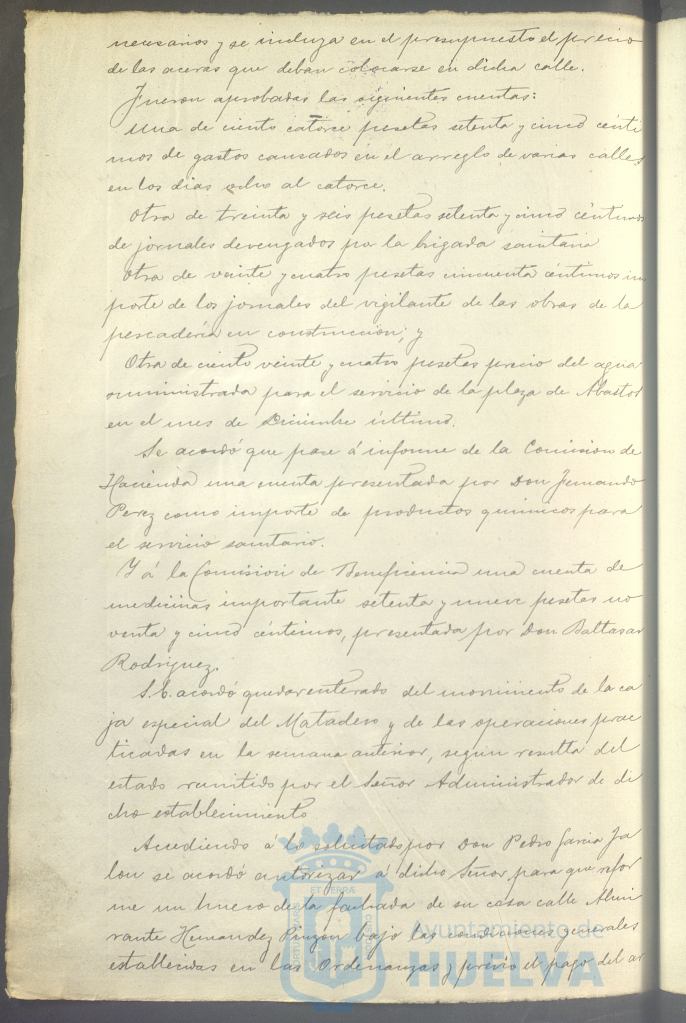 necesarios y se incluya en el presupuesto el precio
de las aceras que deban colocarse en dicha calle.
Fueron aprobadas las siguientes cuentas:
Una de ciento catorce pesetas setenta y cinco centi
mos de gastos causados en el arreglo de varias calles
en los dias ocho al catorce.
Otra de treinta y seis pesetas setenta y cinco céntimos
de jornales devengados por la brigada sanitaria
Otra de veinte y cuatro pesetas cincuenta céntimos im
porte de los jornales del vigilante de las obras de la
pescadería en construccion; y
Otra de ciento veinte y cuatro pesetas precio del agua
suministrada para el servicio de la plaza de Abastos
en el mes de Diciembre último.
Se acordó que pase á informe de la Comision de
Hacienda una cuenta presentada por Don Fernando
Perez como importe de productos quimicos para
el servicio sanitario.
Y á la Comision de Beneficencia una cuenta de
medicinas importante setenta y nueve pesetas no
venta y cinco céntimos, presentada por Don Baltasar
Rodriguez.
S. E. acordó quedar enterado del movimiento de la ca
ja especial del Matadero y de las operaciones prac
ticadas en la semana anterior, segun resulta del
estado remitido por el Señor Administrador de di
cho establecimiento
Accediendo á lo solicitado por Don Pedro Garcia Ja
lon se acordó autorizar á dicho Señor para que refor
me un hueco de la fachada de su casa calle Almi
rante Hernandez Pinzon bajo las condiciones generales
establecidas en las Ordenanzas y previo el pago del ar
ET TERRÆ
Ayuntamiento de
HUELVA